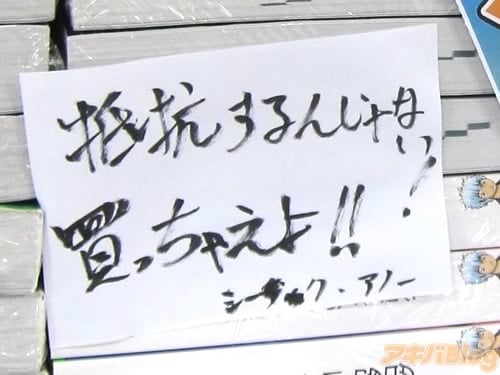 抵抗するんじゃない!
買っちゃえよ!!
シーザック・アノー
アキバBlog